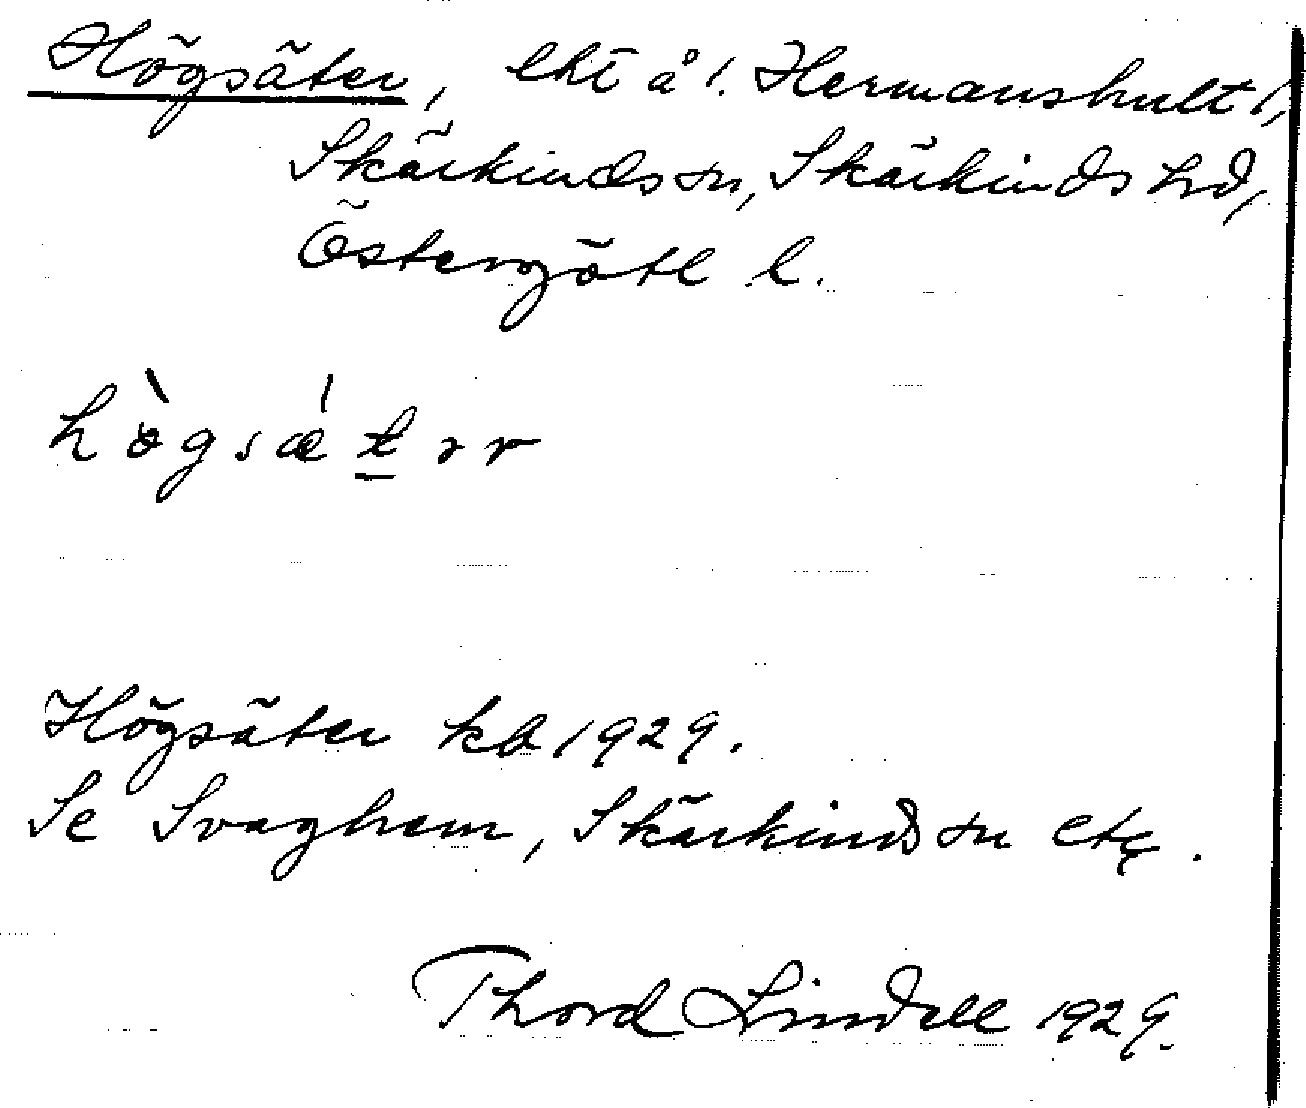 Högsäter, lht å 1. Hermanshult 1,
Skärkinds sn, Skärkinds hd,
Östergötl l.
hògsæ´tər
Högsäter kb 1929.
Se Svaghem, Skärkinds sn etc.
Thord Lindell 1929.